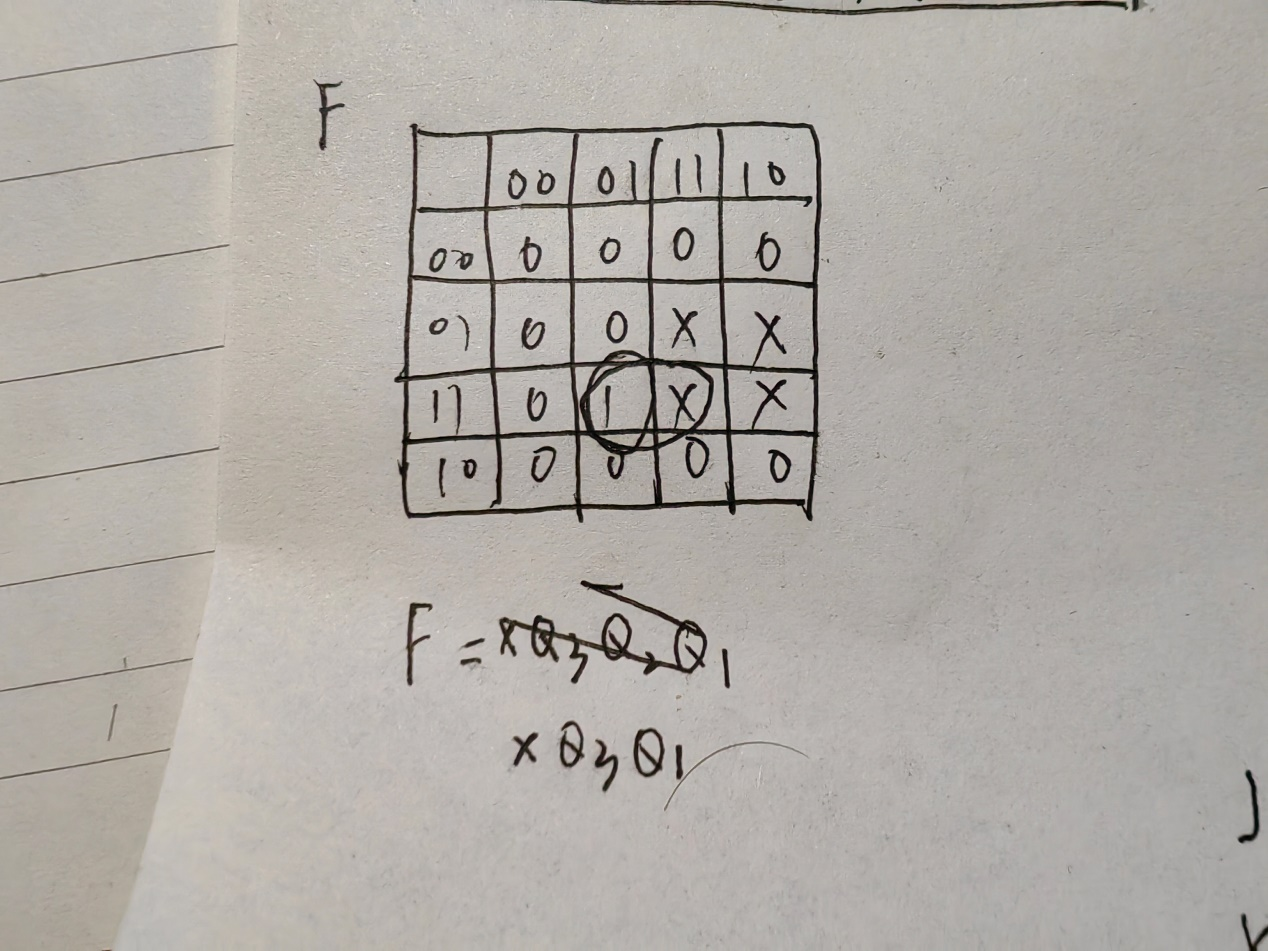 F
00 01 11 10
00 0 0 0 0
01 0 0 X X
11 0 1 X X
10 0 0 0 0
F = x Q3 Q2 Q1
x Q3 Q1
J